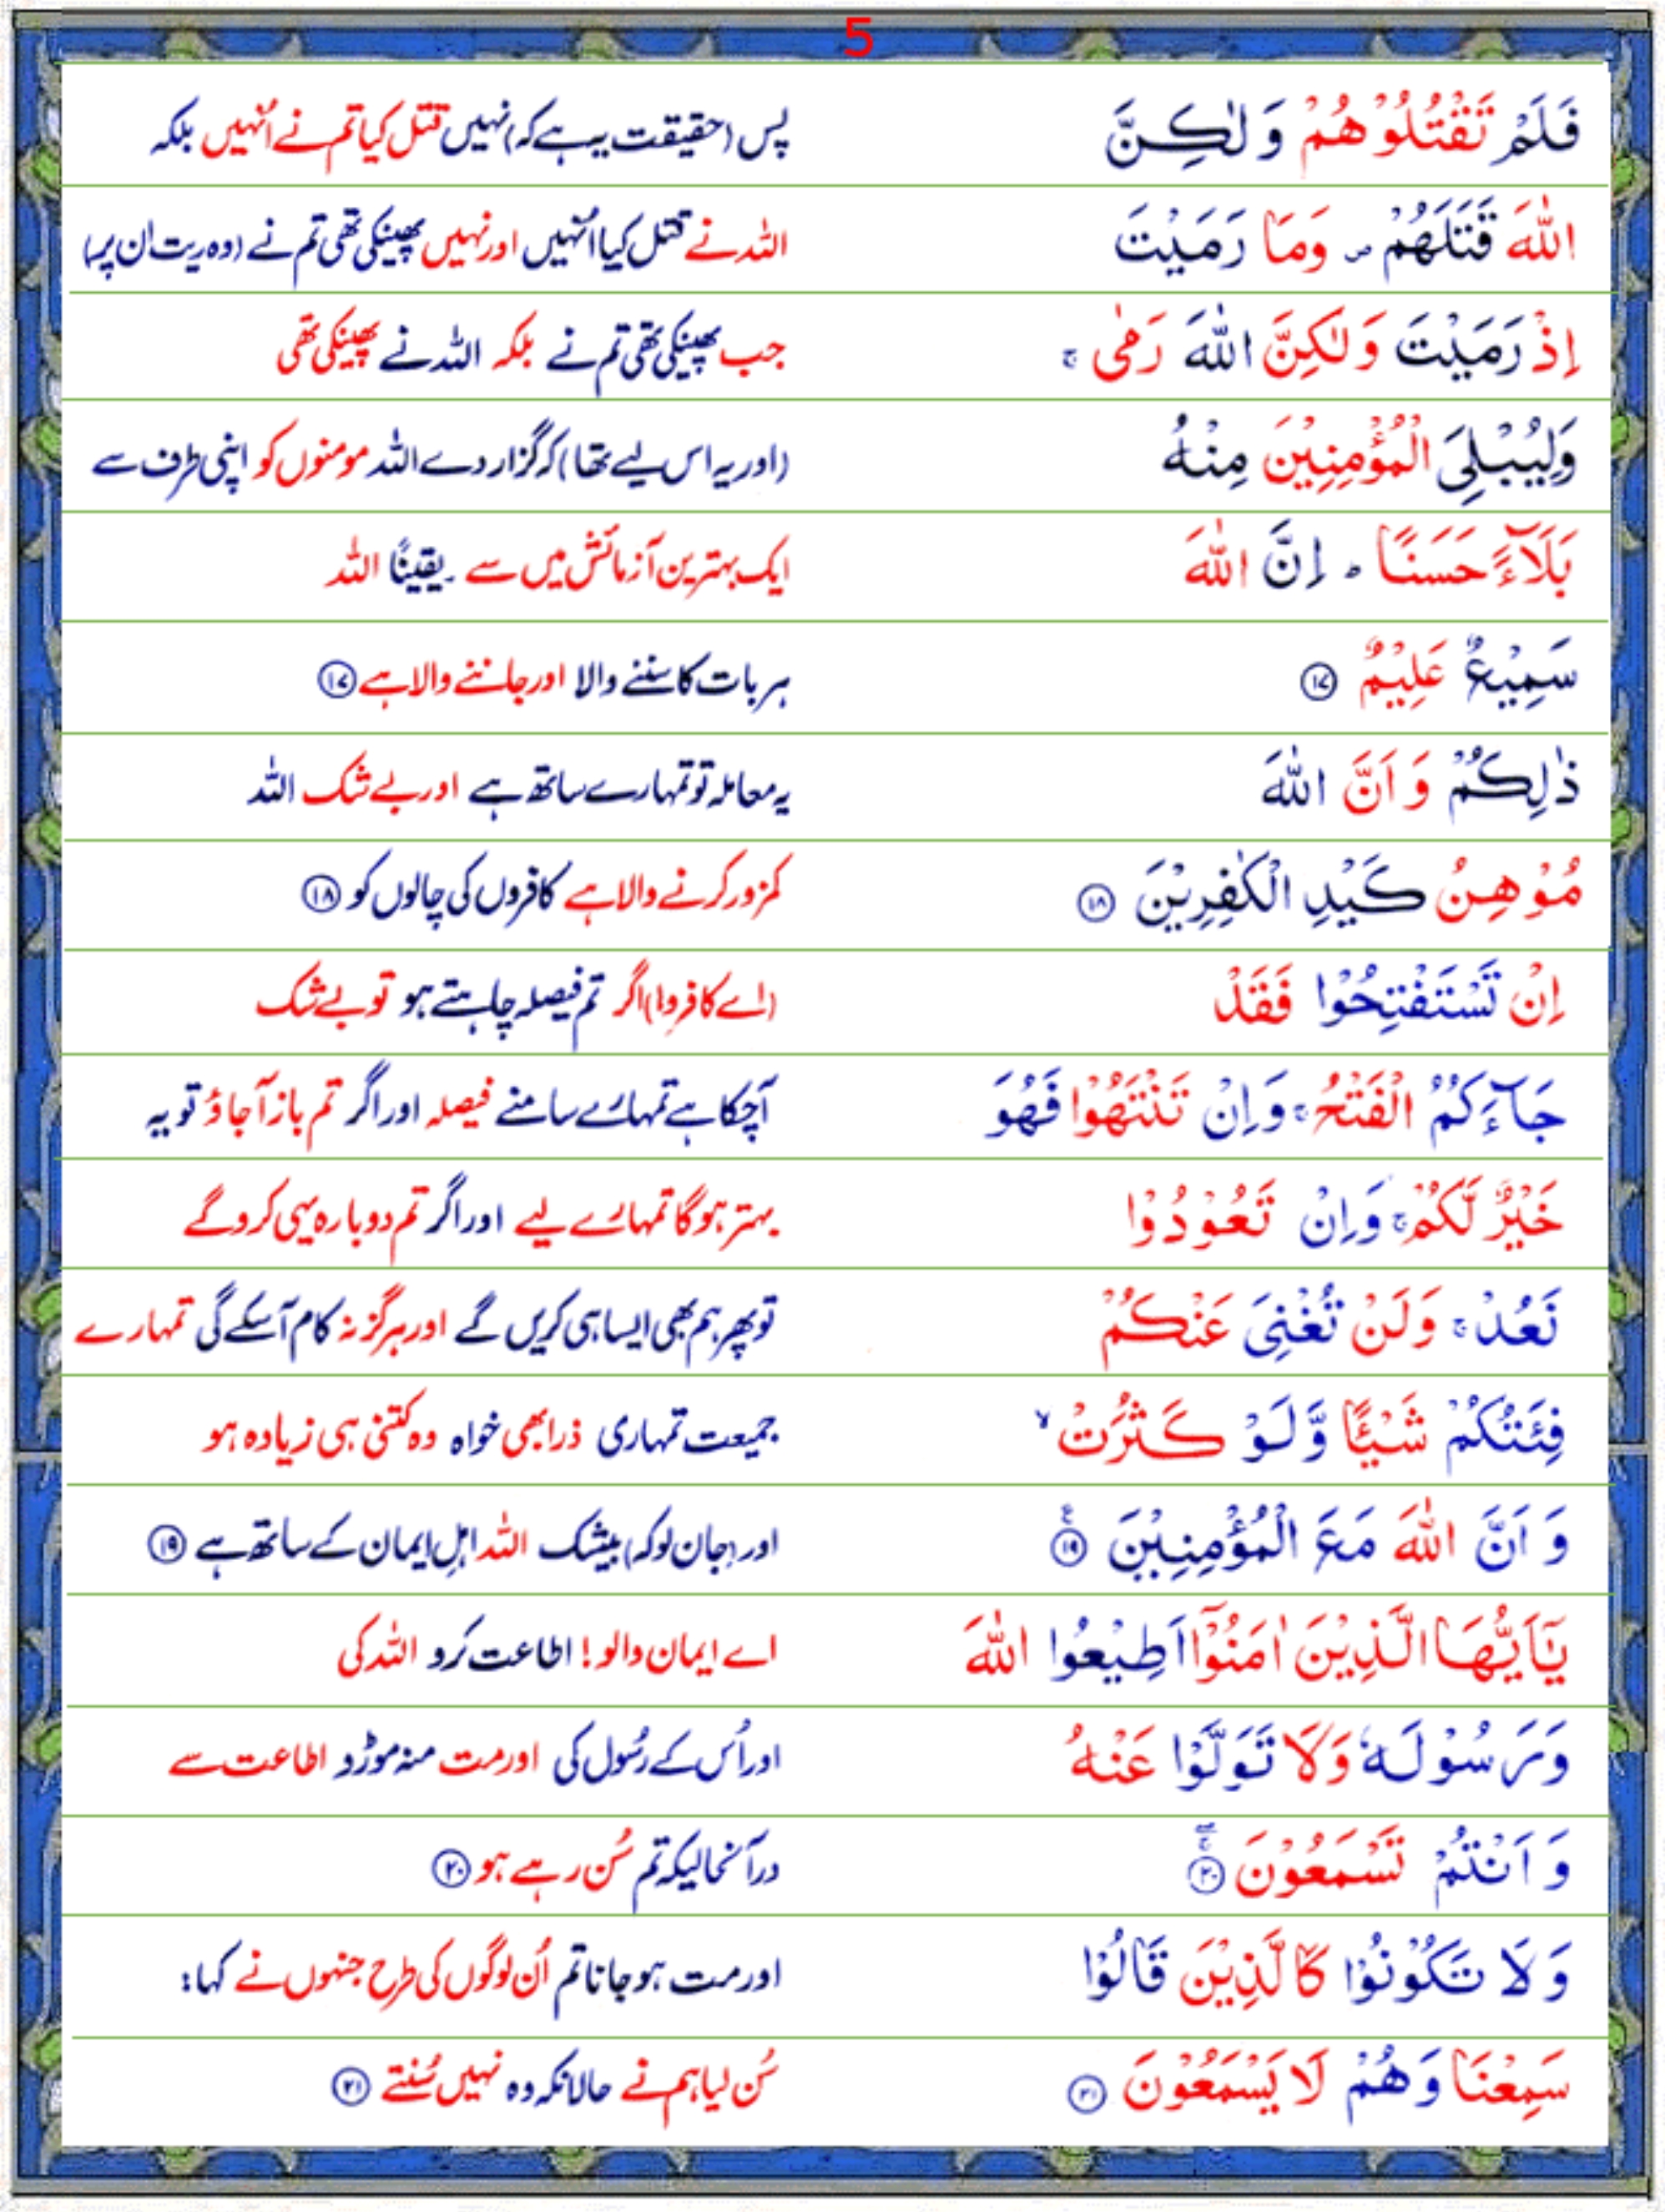 5
فَلَمْ تَقْتُلُوْهُمْ وَ لٰكِنَّ پس (حقیقت یہ ہے کہ) نہیں قتل کیا تم نے اُنہیں بلکہ
اللّٰهَ قَتَلَهُمْ ۪ وَمَا رَمَيْتَ اللہ نے قتل کیا انہیں اور نہیں پھینکی تھی تم نے (وہ ریت ان پر)
اِذْ رَمَيْتَ وَ لٰكِنَّ اللّٰهَ رَمٰى ۚ جب پھینکی تھی تم نے بلکہ اللہ نے پھینکی تھی
وَلِيُبْلِىَ الْمُؤْمِنِيْنَ مِنْهُ (اور یہ اس لیے تھا) کہ گزار دے اللہ مومنوں کو اپنی طرف سے
بَلَآءً حَسَنًا ؕ اِنَّ اللّٰهَ ایک بہترین آزمائش میں سے یقینًا اللہ
سَمِيْعٌ عَلِيْمٌ ۱۷ ہر بات کا سننے والا اور جاننے والا ہے ۱۷
ذٰلِكُمْ وَ اَنَّ اللّٰهَ یہ معاملہ تو تمہارے ساتھ ہے اور بے شک اللہ
مُوْهِنُ كَيْدِ الْكٰفِرِيْنَ ۱۸ کمزور کرنے والا ہے کافروں کی چالوں کو ۱۸
اِنْ تَسْتَفْتِحُوْا فَقَدْ (اے کافرو!) اگر تم فیصلہ چاہتے ہو تو بے شک
جَآءَكُمُ الْفَتْحُ ۚ وَ اِنْ تَنْتَهُوْا فَهُوَ آچکا ہے تمہارے سامنے فیصلہ اور اگر تم باز آجاؤ تو یہ
خَيْرٌ لَّكُمْ ۚ وَ اِنْ تَعُوْدُوْا بہتر ہوگا تمہارے لیے اور اگر تم دوبارہ یہی کروگے
نَعُدْ ۚ وَلَنْ تُغْنِىَ عَنْكُمْ تو پھر ہم بھی ایسا ہی کریں گے اور ہرگز نہ کام آسکے گی تمہارے
فِئَتُكُمْ شَيْـًٔا وَّ لَوْ كَثُرَتْ ۙ جمیعت تمہاری ذرا بھی خواہ وہ کتنی ہی زیادہ ہو
وَ اَنَّ اللّٰهَ مَعَ الْمُؤْمِنِيْنَ ۱۹ اور (جان لو کہ) بیشک اللہ اہلِ ایمان کے ساتھ ہے ۱۹
يٰۤاَيُّهَا الَّذِيْنَ اٰمَنُوْۤا اَطِيْعُوا اللّٰهَ اے ایمان والو! اطاعت کرو اللہ کی
وَ رَسُوْلَهٗ وَلَا تَوَلَّوْا عَنْهُ اور اُس کے رُسول کی اور مت منہ موڑو اطاعت سے
وَ اَنْتُمْ تَسْمَعُوْنَ ۲۰ درآنحالیکہ تم سُن رہے ہو ۲۰
وَ لَا تَكُوْنُوْا كَالَّذِيْنَ قَالُوْا اور مت ہوجانا تم اُن لوگوں کی طرح جنہوں نے کہا:
سَمِعْنَا وَ هُمْ لَا يَسْمَعُوْنَ ۲۱ سُن لیا ہم نے حالانکہ وہ نہیں سُنتے ۲۱